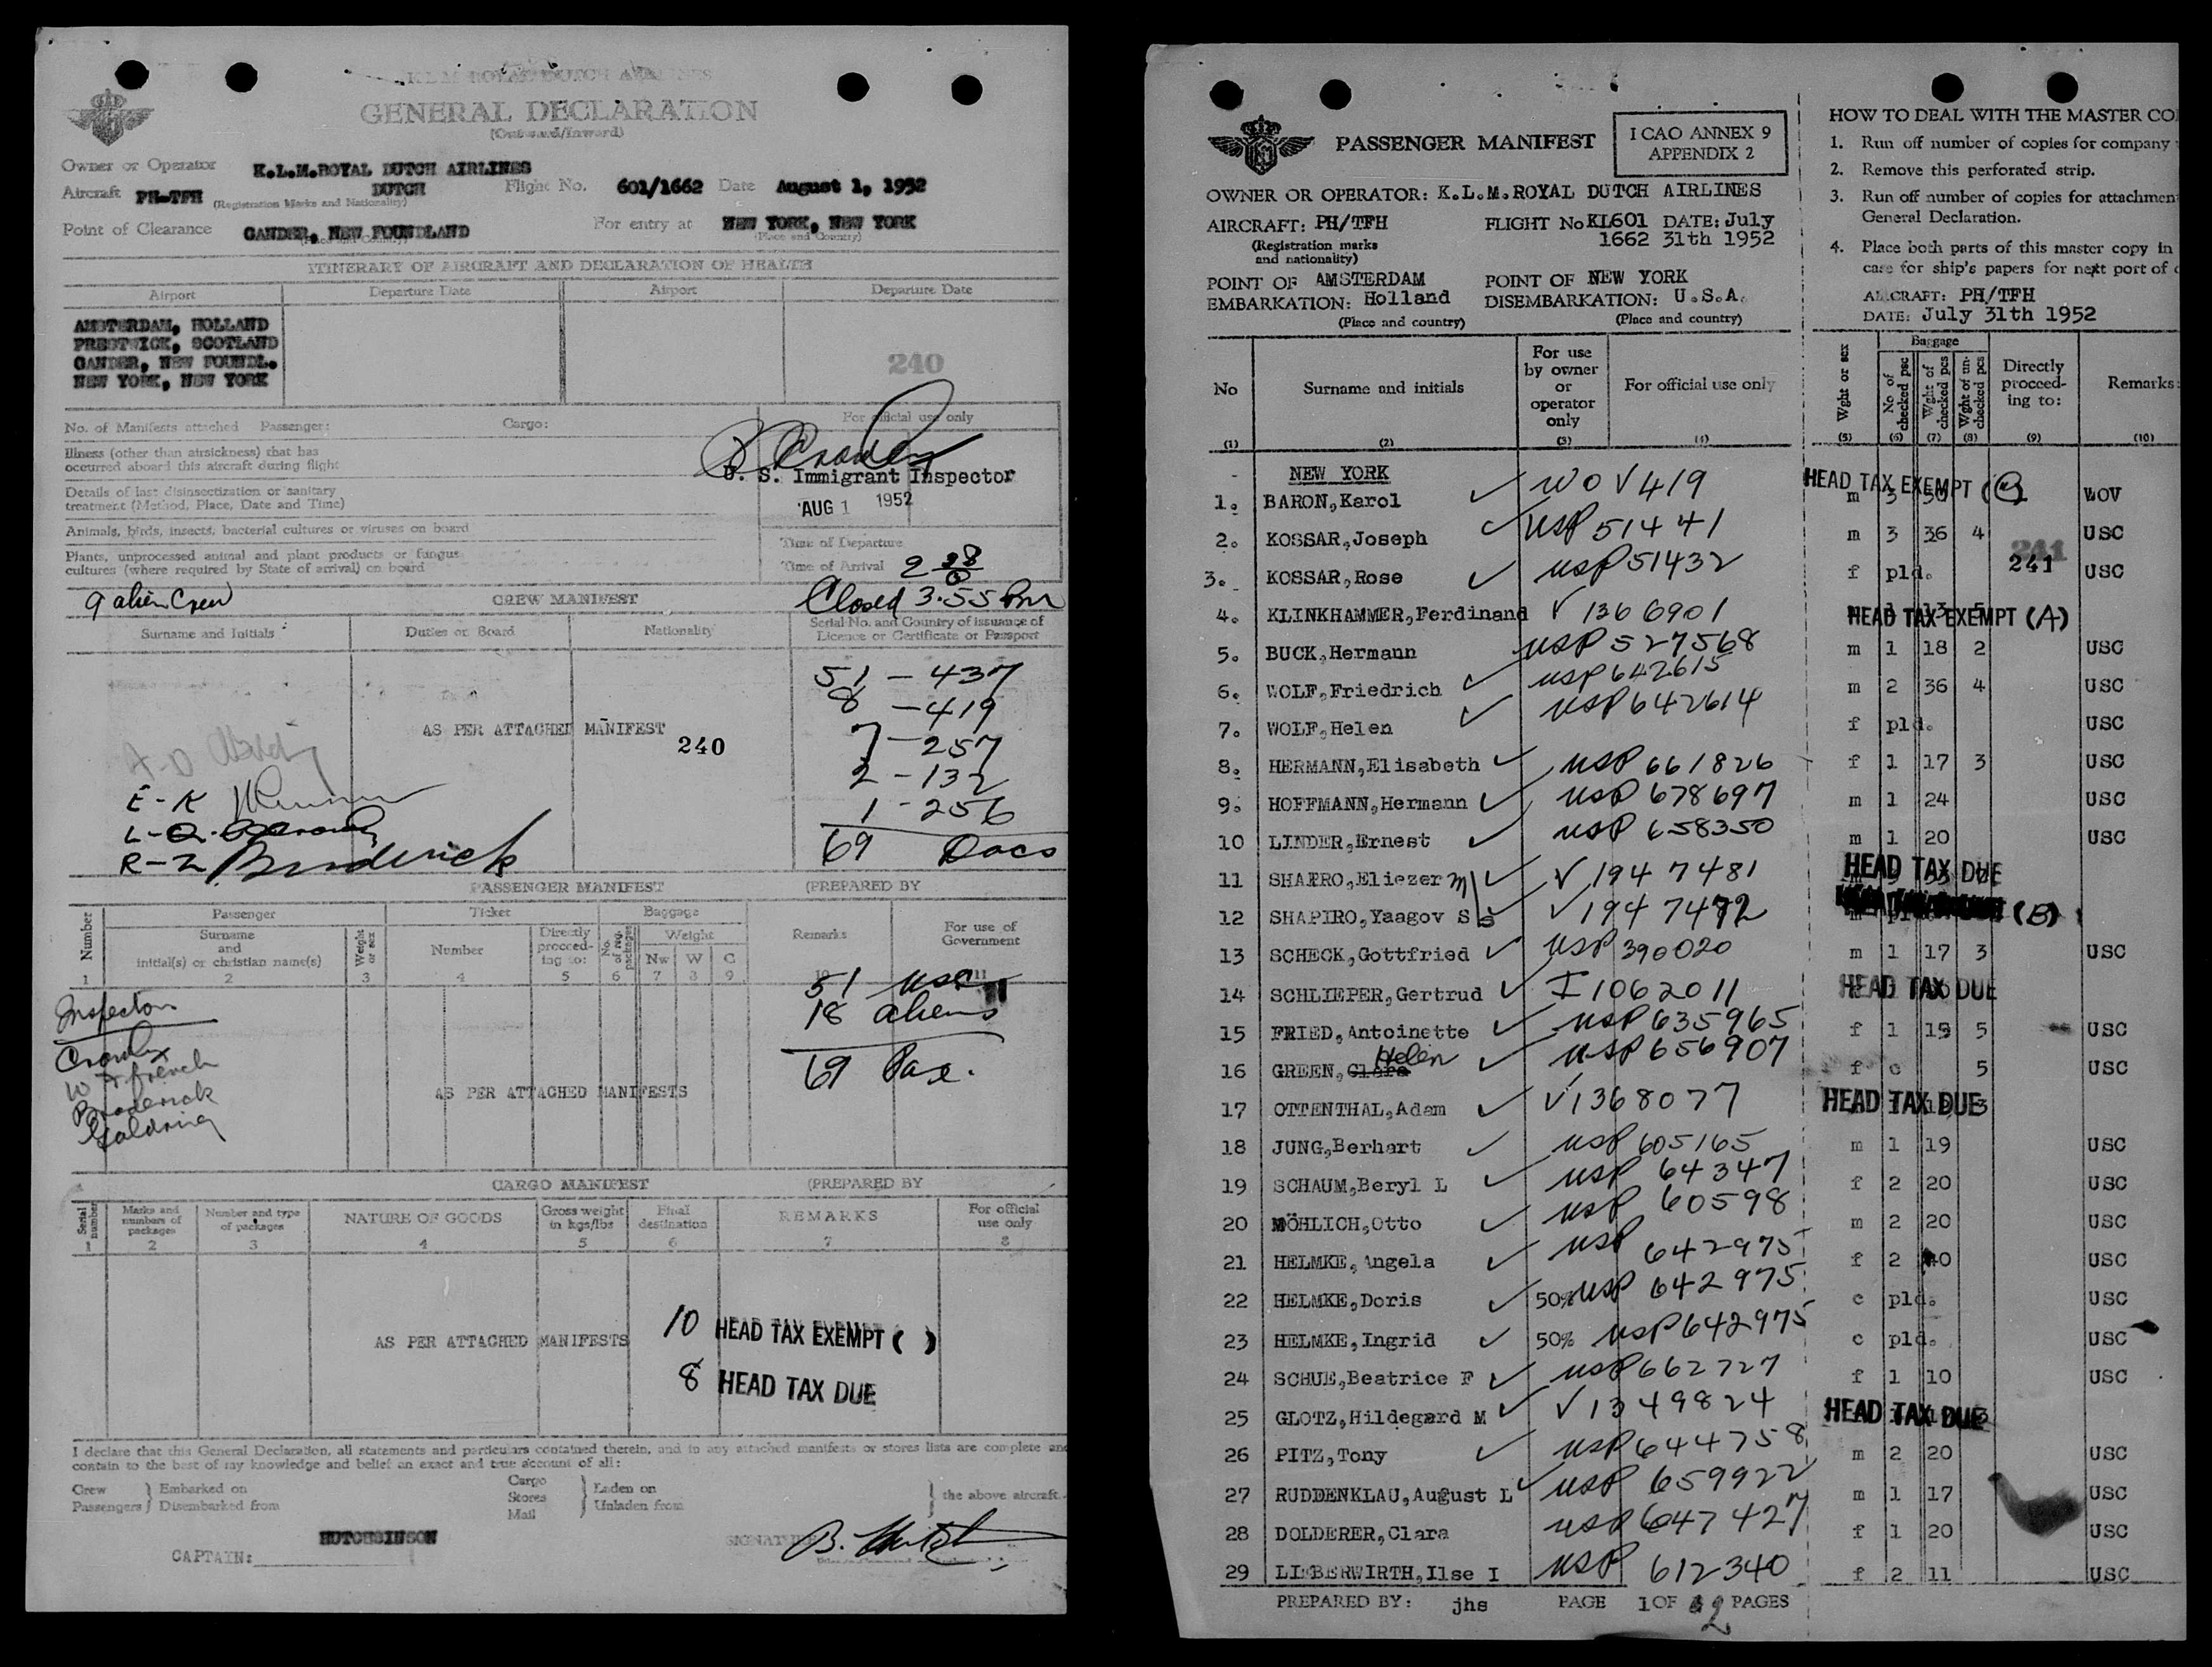 K L M ROYAL DUTCH AIRLINES
GENERAL DECLARATION
(Outward/Inward)
Owner or Operator K.L.M.ROYAL DUTCH AIRLINES
Aircraft PH-TFH DUTCH Flight No. 601/1662 Date August 1, 1952
(Registration Marks and Nationality)
Point of Clearance GANDER, NEW FOUNDLAND For entry at NEW YORK, NEW YORK
(Place and Country) (Place and Country)
ITINERARY OF AIRCRAFT AND DECLARATION OF HEALTH
Airport Departure Date Airport Departure Date
AMSTERDAM, HOLLAND
PRESTWICK, SCOTLAND
GANDER, NEW FOUNDL.
NEW YORK, NEW YORK
240
No. of Manifests attached Passenger: Cargo: For official use only
Illness (other than airsickness) that has
occurred aboard this aircraft during flight
U. S. Immigrant Inspector
Details of last disinsectization or sanitary
treatment (Method, Place, Date and Time)
AUG 1 1952
Animals, birds, insects, bacterial cultures or viruses on board
Plants, unprocessed animal and plant products or fungus
cultures (where required by State of arrival) on board
Time of Departure
Time of Arrival 2 38
9 alien Crew CREW MANIFEST Closed 3.55 Pm
Surname and Initials Duties on Board Nationality Serial No. and Country of issuance of
Licence or Certificate or Passport
51 - 437
8 - 419
7 - 257
2 - 132
1 - 256
69 Docs
AS PER ATTACHED MANIFEST 240
E - K
L - Q
R - Z Broderick
PASSENGER MANIFEST (PREPARED BY
Number Passenger Ticket Baggage Remarks For use of
Government
Surname
and
initial(s) or christian name(s) Weight
or sex Number Directly
proceed-
ing to: No.
of reg.
packages Weight
Nw W C
1 2 3 4 5 6 7 8 9 10 11
51 USC
18 aliens
69 Pax.
Inspectors
Crowley
W A French
Broderick
Goldring
AS PER ATTACHED MANIFESTS
CARGO MANIFEST (PREPARED BY
Serial
number Marks and
numbers of
packages Number and type
of packages NATURE OF GOODS Gross weight
in kgs/lbs Final
destination REMARKS For official
use only
1 2 3 4 5 6 7 8
AS PER ATTACHED MANIFESTS
10 HEAD TAX EXEMPT ( )
8 HEAD TAX DUE
I declare that this General Declaration, all statements and particulars contained therein, and in any attached manifests or stores lists are complete and
contain to the best of my knowledge and belief an exact and true account of all:
Crew
Passengers } Embarked on
Disembarked from
Cargo
Stores
Mail } Laden on
Unladen from } the above aircraft.
HUTCHSINSON
CAPTAIN:
SIGNATURE
PASSENGER MANIFEST
I CAO ANNEX 9
APPENDIX 2
OWNER OR OPERATOR: K.L.M.ROYAL DUTCH AIRLINES
AIRCRAFT: PH/TFH FLIGHT No KL601 DATE: July
(Registration marks
and nationality) 1662 31th 1952
POINT OF AMSTERDAM POINT OF NEW YORK
EMBARKATION: Holland DISEMBARKATION: U.S.A.
(Place and country) (Place and country)
HOW TO DEAL WITH THE MASTER CO
1. Run off number of copies for company
2. Remove this perforated strip.
3. Run off number of copies for attachmen
General Declaration.
4. Place both parts of this master copy in
case for ship's papers for next port of
AIRCRAFT: PH/TFH
DATE: July 31th 1952
No Surname and initials For use
by owner
or
operator
only For official use only Wght or sex Baggage Directly
proceed-
ing to: Remarks:
No of
checked psc Wght of
checked pcs Wght of un-
checked pcs
(1) (2) (3) (4) (5) (6) (7) (8) (9) (10)
NEW YORK
1. BARON,Karol WOV 419 HEAD TAX EXEMPT m 3 30 WOV
2. KOSSAR,Joseph USP 51441 m 3 36 4 USC
3. KOSSAR,Rose USP 51432 f pld. 241 USC
4. KLINKHAMMER,Ferdinand V 1366901 HEAD TAX EXEMPT (A)
5. BUCK,Hermann USP 527568 m 1 18 2 USC
6. WOLF,Friedrich USP 642615 m 2 36 4 USC
7. WOLF,Helen USP 642614 f pld. USC
8. HERMANN,Elisabeth USP 661826 f 1 17 3 USC
9. HOFFMANN,Hermann USP 678697 m 1 24 USC
10 LINDER,Ernest USP 658350 m 1 20 USC
11 SHAPIRO,Eliezer M V 1947481 HEAD TAX DUE
12 SHAPIRO,Yaagov S S V 1947472 (B)
13 SCHECK,Gottfried USP 390020 m 1 17 3 USC
14 SCHLIEPER,Gertrud I 1062011 HEAD TAX DUE
15 FRIED,Antoinette USP 635965 f 1 15 5 USC
16 GREEN,Clara Helen USP 656907 f c 5 USC
17 OTTENTHAL,Adam V 1368077 HEAD TAX DUE 3
18 JUNG,Berhart USP 605165 m 1 19 USC
19 SCHAUM,Beryl L USP 64347 f 2 20 USC
20 MÖHLICH,Otto USP 60598 m 2 20 USC
21 HELMKE,Angela USP 642975 f 2 40 USC
22 HELMKE,Doris 50% USP 642975 c pld. USC
23 HELMKE,Ingrid 50% USP 642975 c pld. USC
24 SCHUE,Beatrice F USP 662727 f 1 10 USC
25 GLOTZ,Hildegard M V 1349824 HEAD TAX DUE
26 PITZ,Tony USP 644758 m 2 20 USC
27 RUDDENKLAU,August L USP 659922 m 1 17 USC
28 DOLDERER,Clara USP 647427 f 1 20 USC
29 LIEBERWIRTH,Ilse I USP 612340 f 2 11 USC
PREPARED BY: jhs PAGE 1 OF 2 PAGES